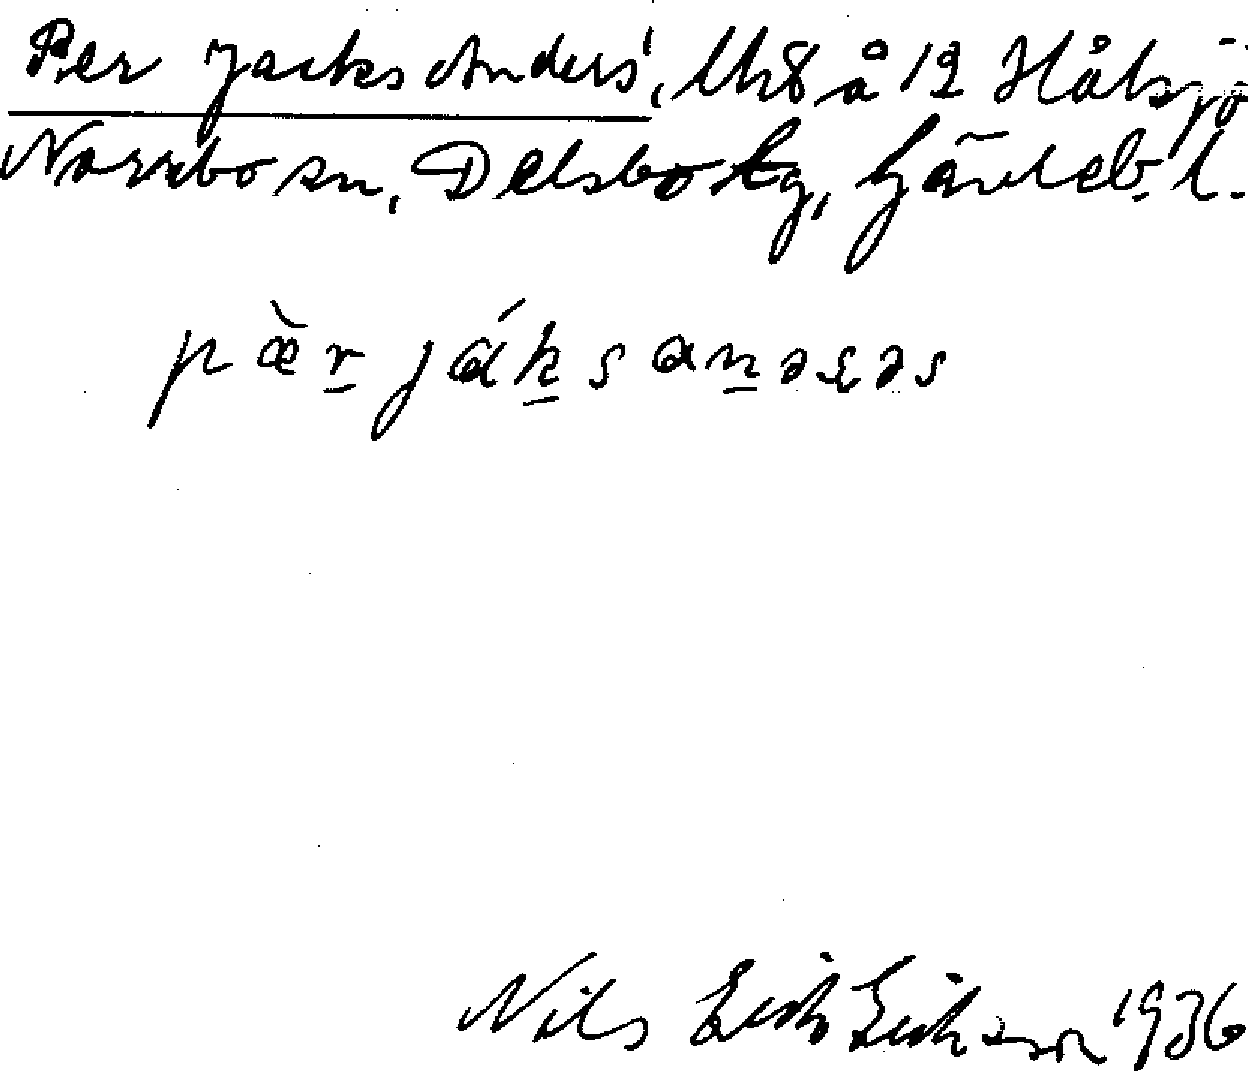 Per Jacks Anders', Nr 8 å 12 Hålsjö
Norrbo sn, Delsbo tg, Gävleb. l.
pæ̀r̲ják̲san̲əṣəs
Nils Erik Eriksson 1936